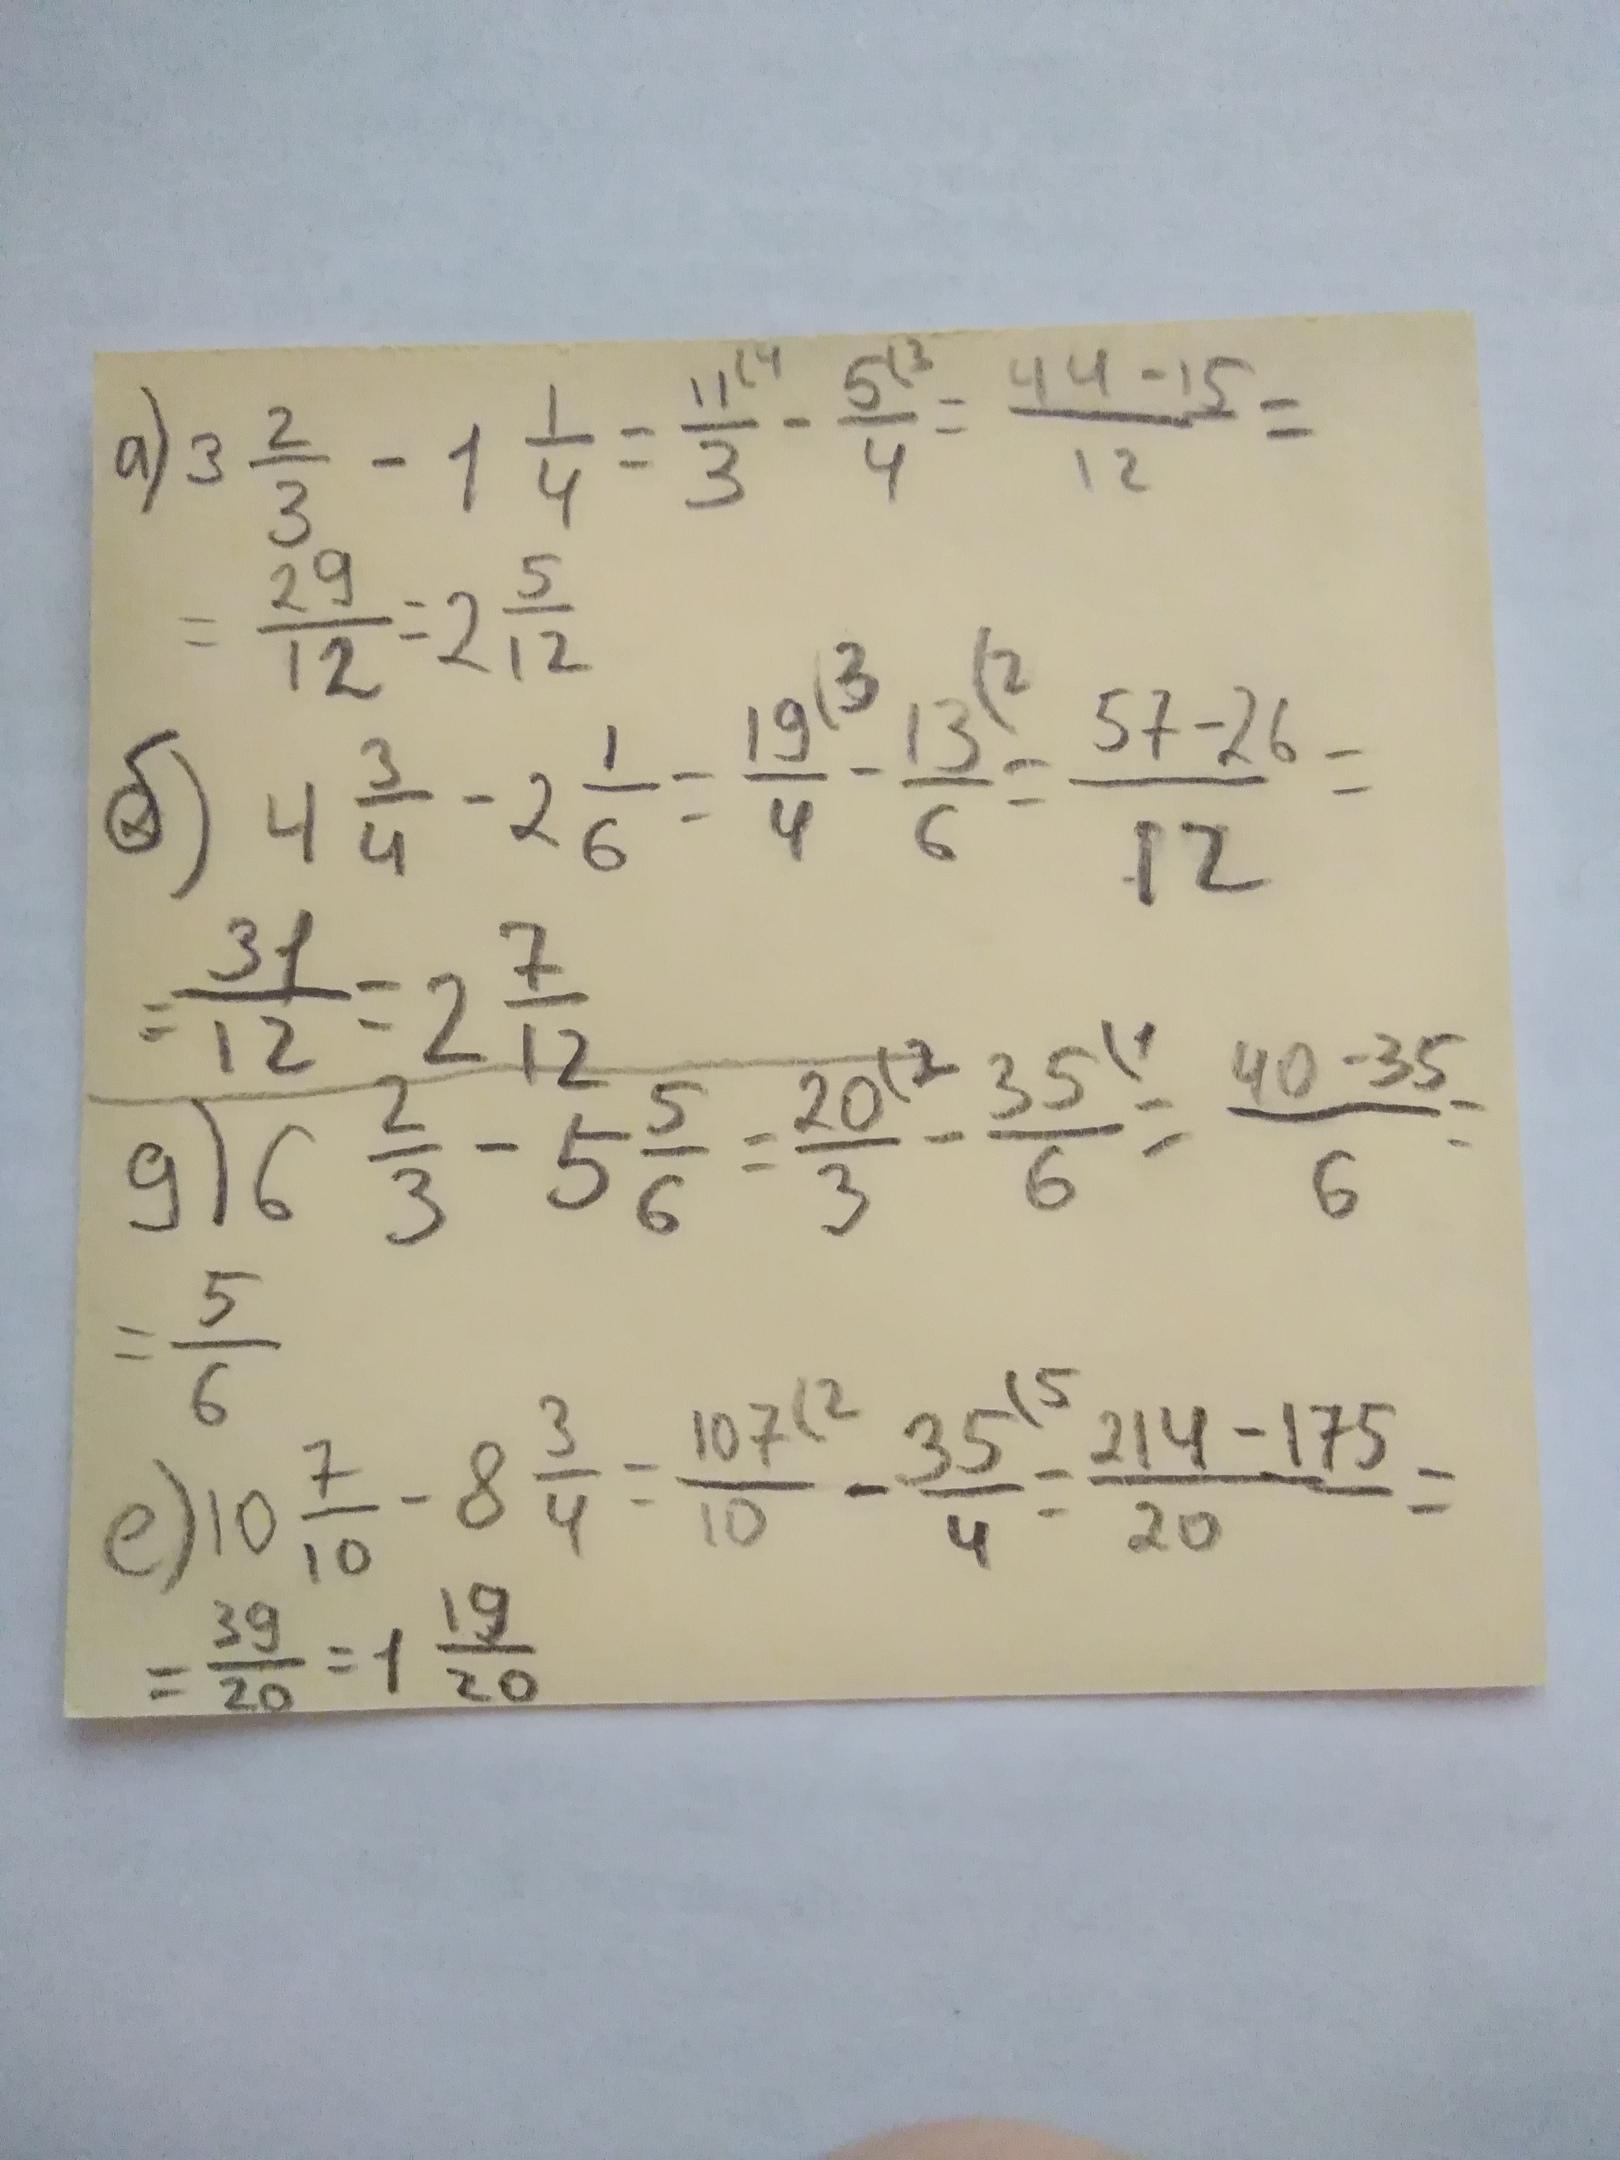 а) 3 2/3 - 1 1/4 = 11(4/3 - 5(3/4 = 44-15/12 =
= 29/12 = 2 5/12
б) 4 3/4 - 2 1/6 = 19(3/4 - 13(2/6 = 57-26/12 =
= 31/12 = 2 7/12
g) 6 2/3 - 5 5/6 = 20(2/3 - 35(1/6 = 40-35/6 =
= 5/6
е) 10 7/10 - 8 3/4 = 107(2/10 - 35(5/4 = 214-175/20 =
= 39/20 = 1 19/20